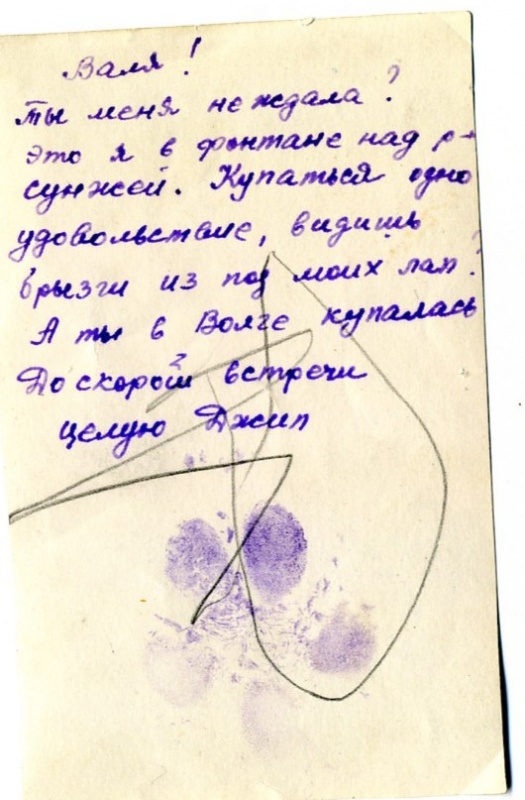 Валя!
Ты меня не ждала?
это я в фонтане над р-
сунжей. Купаться одно
удовольствие, видишь
брызги из под моих лап?
А ты в Волге купалась
?
До скорой встречи
целую Джип